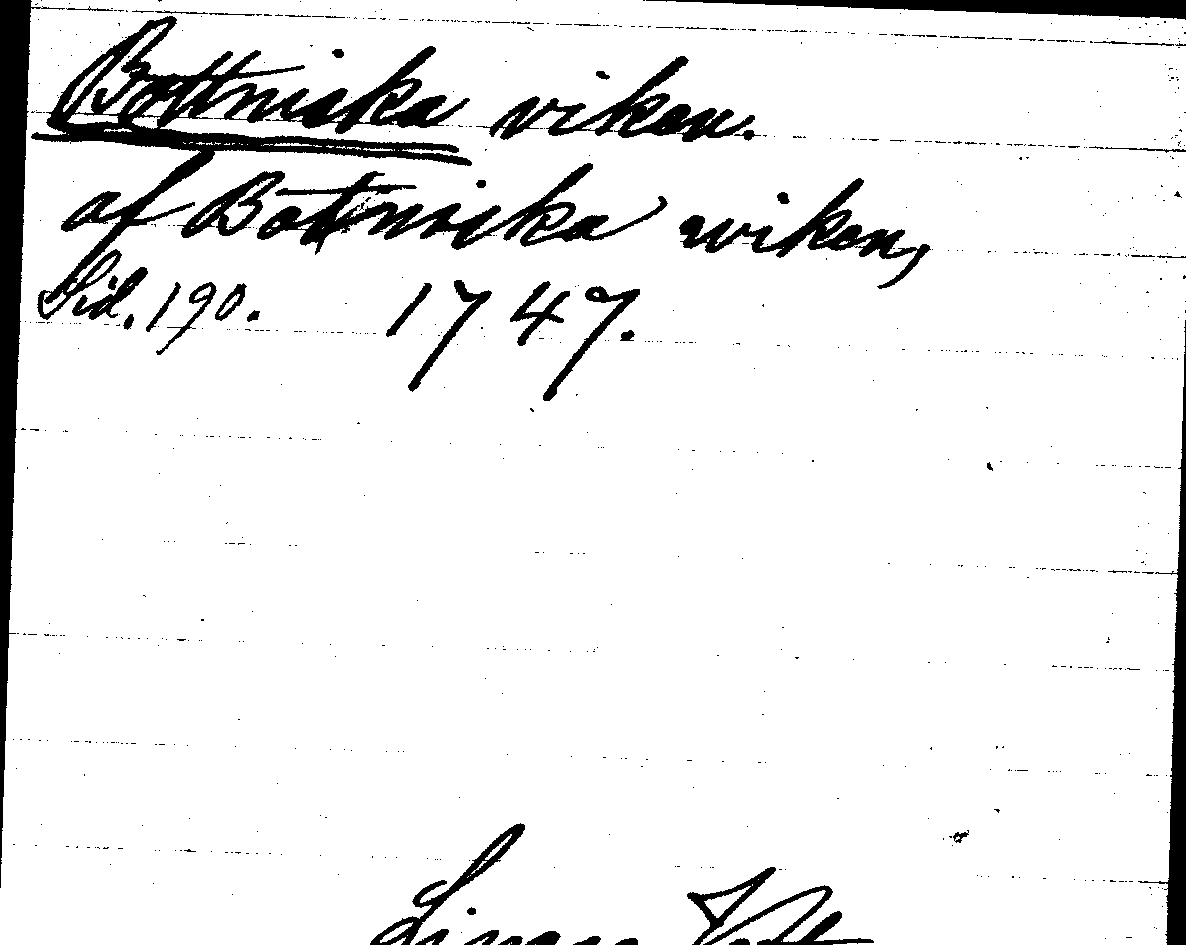 Bottniska viken.
af Botniska wiken,
Sid. 190. 1747.